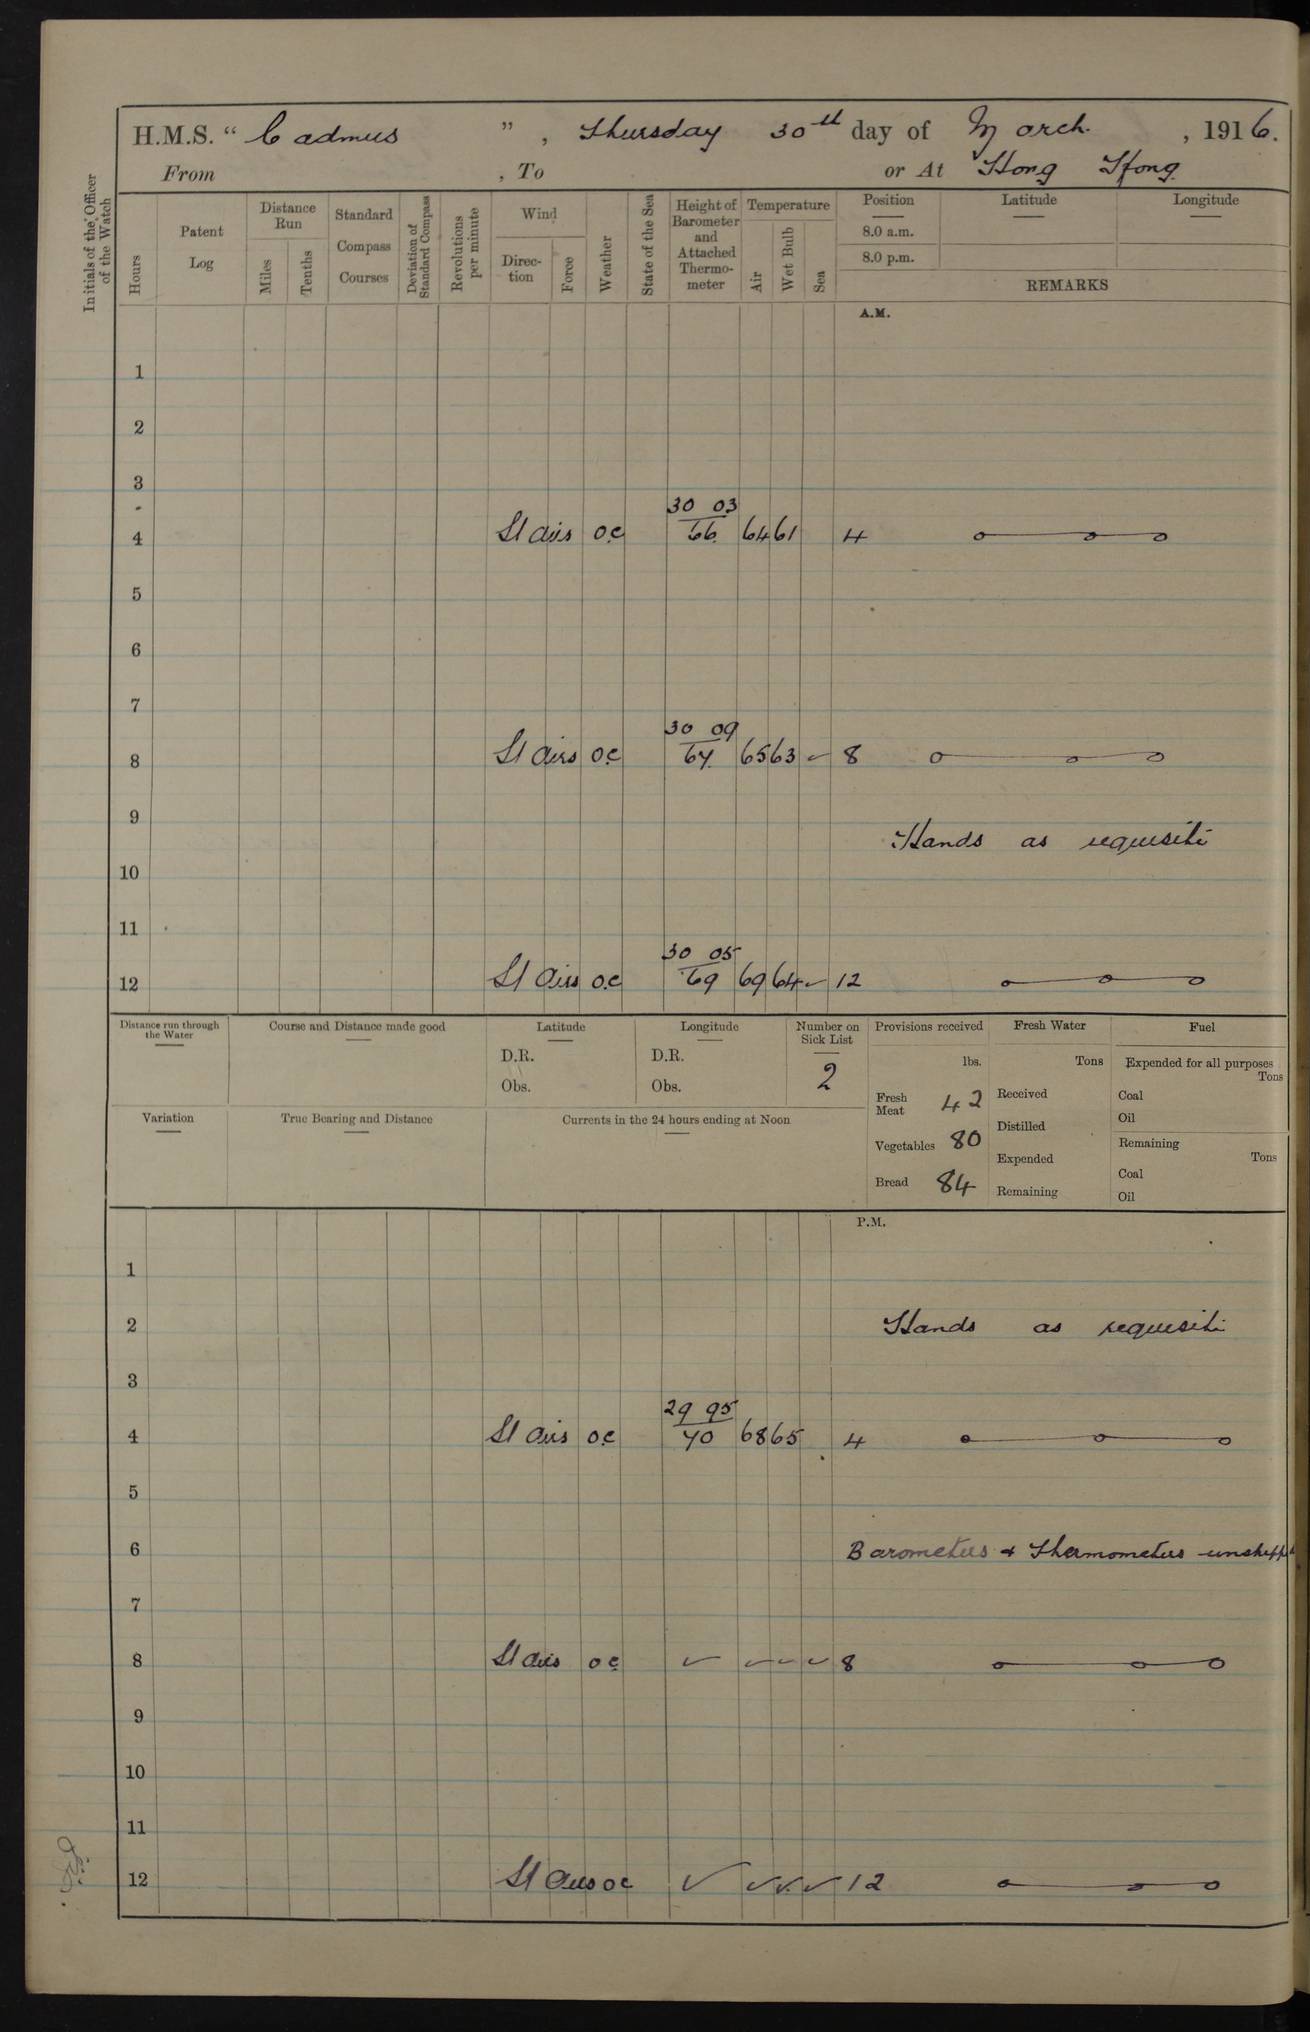 H.M.S. " Cadmus ", Thursday 30th day of March. , 1916.
From , To or At Hong Kong
Initials of the Officer of the Watch
Hours
Patent Log
Distance Run
Miles
Tenths
Standard Compass Courses
Deviation of Standard Compass
Revolutions per minute
Wind
Direc-tion
Force
Weather
State of the Sea
Height of Barometer and Attached Thermo-meter
Temperature
Air
Wet Bulb
Sea
Position
8.0 a.m.
8.0 p.m.
Latitude
Longitude
REMARKS
A.M.
1
2
3
30 03
4 Lt airs o.c 66 64 61 4
5
6
7
30 09
8 Lt airs o.c 67 65 63 ✓ 8
9
Hands as requisite
10
11
30 05
12 Lt airs o.c 69 69 64 ✓ 12
Distance run through the Water
Course and Distance made good
Latitude
D.R.
Obs.
Longitude
D.R.
Obs.
Number on Sick List
2
Provisions received
lbs.
Fresh Meat 42
Vegetables 80
Bread 84
Fresh Water
Tons
Received
Distilled
Expended
Remaining
Fuel
Expended for all purposes
Tons
Coal
Oil
Remaining
Tons
Coal
Oil
Variation
True Bearing and Distance
Currents in the 24 hours ending at Noon
P.M.
1
2 Hands as requisite
3
29 95
4 Lt airs o.c 70 68 65 4
5
6 Barometers & Thermometers unshipped
7
8 Lt airs o c ✓ ✓ ✓ ✓ 8
9
10
11
12 Lt airs o c ✓ ✓ ✓ ✓ 12